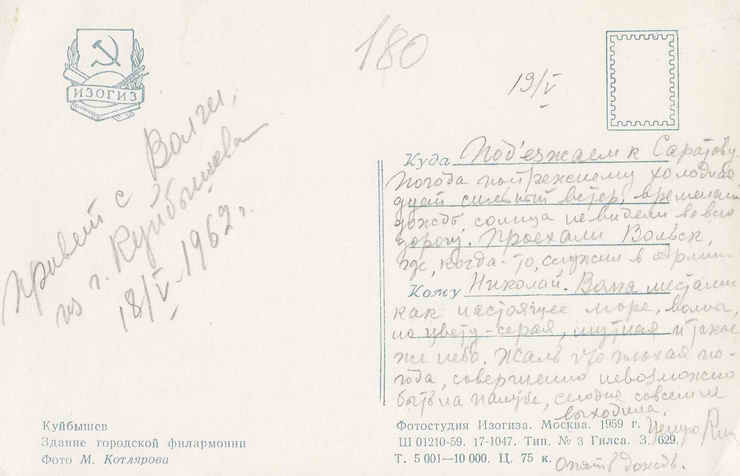 180
ИЗОГИЗ
19/V
привет с Волги,
из г. Куйбышева
18/V-1962 г.
Куда Под'езжаем к Саратову.
Погода по прежнему холодно
дует сильный ветер, временами
дождь, солнца не видели во всю
дорогу. Проехали Вольск,
где, когда-то, служил в армии
Кому Николай. Волга местами
как настоящее море, волна,
по цвету-серая, мутная и такое
же небо. Жаль что плохая по-
года, совершенно невозможно
быть на палубе, сегодня совсем не
выходила.
опять дождь.
Куйбышев
Здание городской филармонии
Фото М. Котлярова
Фотостудия Изогиза. Москва. 1959 г.
Ш 01210-59. 17-1047. Тип. № 3 Гилса. З. 629.
Т. 5 001—10 000. Ц. 75 к.